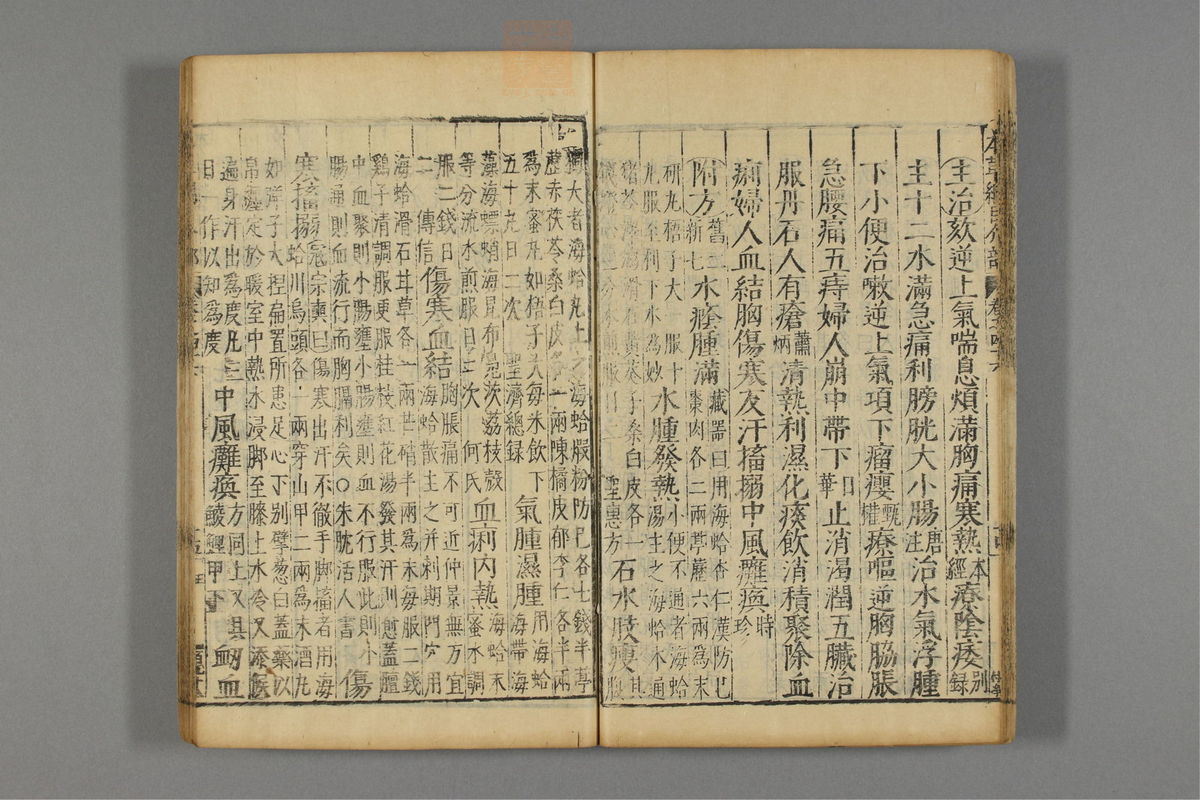 主治欬逆上氣喘息煩滿胸痛寒熱本經療陰痿別錄
主十二水滿急痛利膀胱大小腸唐注治水氣浮腫
下小便治嗽逆上氣項下瘤癭甄權療嘔逆胸脇脹
急腰痛五痔婦人崩中帶下日華止消渴潤五臟治
服丹石人有瘡蕭炳清熱利濕化痰飲消積聚除血
痢婦人血結胸傷寒反汗搐搦中風癱瘓時珍
附方舊二新七水癊腫滿藏器曰用海蛤杏仁漢防己
棗肉各二兩葶藶六兩為末
研丸梧子大一服十
九服至利下水為妙水腫發熱小便不通者海蛤
湯主之海蛤木通
猪苓澤瀉滑石黃葵子桑白皮各一
聖惠方石水肢瘦其
獨大者海蛤丸主之海蛤股粉防己各七錢半葶
藶赤茯苓桑白皮各一兩陳橘皮郁李仁各半兩
為末蜜丸如梧子大每米飲下
五十丸日二次聖濟總錄氣腫濕腫用海蛤
海帶海
藻海螵蛸海昆布鳧茨荔枝殼
等分流水煎服日二次何氏血痢內熱海蛤末
蜜水調
服二錢日
二傳信傷寒血結胸脹痛不可近仲景無方宜
海蛤散主之并刺期門穴用
海蛤滑石甘草各一兩芒硝半兩為末每服二錢
雞子清調服更服桂枝紅花湯發其汗則愈蓋膻
中血聚則小腸壅小腸壅則血不行服此則小
腸通則血流行而胸膈利矣○朱肱活人書傷
寒搐搦寇宗奭曰傷寒出汗不徹手脚搐者用海
蛤川烏頭各一兩穿山甲二兩為末酒丸
如彈子大捏扁置所患足心下別擘葱白蓋藥以
帛纏定於暖室中熱水浸脚至膝上水冷又添候
遍身汗出為度凡三
日一作以知為度中風癱瘓方同上又具
鯪鯉甲下衄血